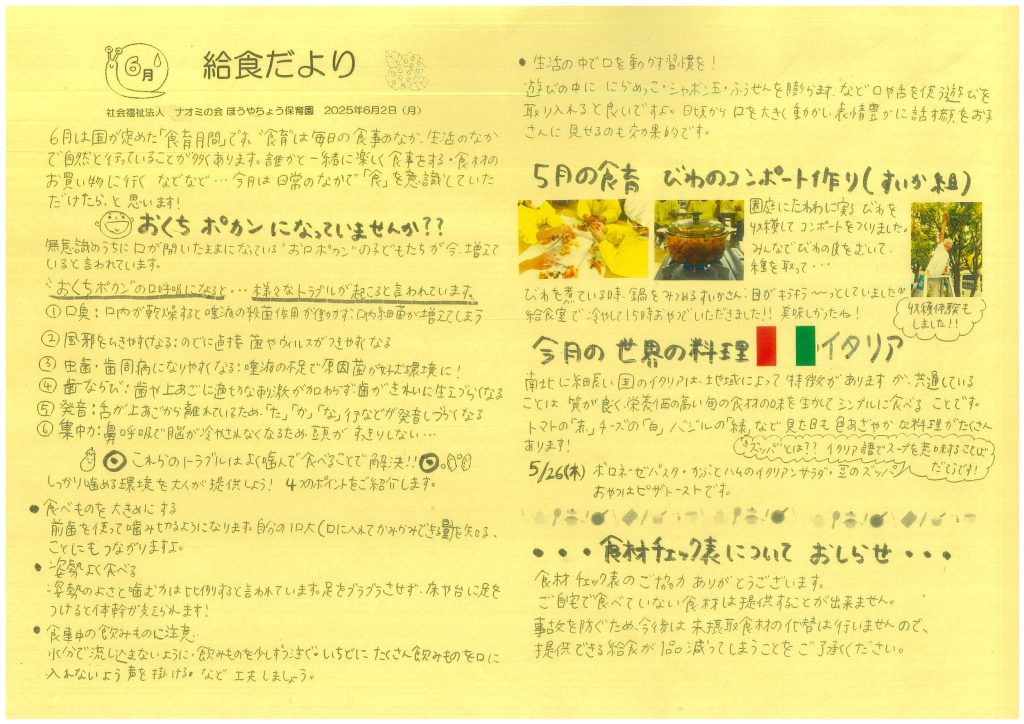 6月
給食だより
社会福祉法人 ナオミの会 ほうやちょう保育園 2025年6月2日(月)
6月は国が定めた「食育月間」です。“食育”は毎日の食事のなか、生活のなか
で自然と行っていることが多くあります。誰かと一緒に楽しく食事をする・食材の
お買い物に行く などなど…今月は日常のなかで「食」を意識していた
だけたら、と思います!
おくち ポカンになっていませんか??
無意識のうちに口が開いたままになっている“お口ポカン”の子どもたちが今、増えて
いると言われています。
“おくちポカン”の口呼吸になると… 様々なトラブルが起こると言われています。
①口臭:口内が乾燥すると唾液の殺菌作用が働かず、口内細菌が増えてしまう
②風邪をひきやすくなる:のどに直接 菌やウイルスがつきやすくなる
③虫歯・歯周病になりやすくなる:唾液の不足で原因菌が好む環境に!
④歯ならび:歯や上あごに適切な刺激が加わらず歯がきれいに生えづらくなる
⑤発音:舌が上あごから離れているため、“た”“か”“な”行などが発音しづらくなる
⑥集中力:鼻呼吸で脳が冷やされなくなるため、頭が すっきりしない…
これらのトラブルはよく噛んで食べることで解決!!
しっかり噛める環境を大人が提供しよう! 4つのポイントをご紹介します。
●食べものを大きめにする
前歯を使って噛みせつるようになります。自分の1口大(口に入れてかみかみできる量)を知る、
ことにもつながりますよ。
●姿勢よく食べる
姿勢のよさと噛む力は比例すると言われています。足をブラブラさせず、床や台に足を
つけると体幹が支えられます!
●食事中の飲みものに注意
水分で流し込まないように、飲みものを少しずつ注ぐ。いちどにたくさん飲みものを口に
入れないよう声を掛ける。など工夫しましょう。
●生活の中で口を動かす習慣を!
遊びの中に にらめっこ・シャボン玉・ふうせんを膨らます、など口や舌を使う遊びを
取り入れると良いですよ。日頃から口を大きく動かし、表情豊かに話す顔をお子
さんに見せるのも効果的です。
5月の食育 びわのコンポート作り(すいか組)
園庭にたわわに実るびわを
収穫してコンポートをつくりました。
みんなでびわの皮をむいて、
種を取って・・・
びわを煮ている時、鍋をみつめるすいかさん:目がキラキラ~っとしていました
給食室で冷やして15時おやつでいただきました!! 美味しかったね!
収穫体験も
しました!!
今月の世界の料理 イタリア
南北に細長い国のイタリアは、地域によって特徴がありますが、共通している
ことは 質が良く、栄養価の高い旬の食材の味を生かしてシンプルに食べる ことです。
トマトの「赤」、チーズの「白」、バジルの「緑」など見た目も色あざやかな料理がたくさん
あります!
ズッパとは?? イタリア語でスープを意味することば
だそうです!
5/26(木) ボロネーゼパスタ・かぶとハムのイタリアンサラダ・豆のズッパ
おやつはピザトーストです。
・・・食材チェック表について おしらせ・・・
食材チェック表のご協力ありがとうございます。
ご自宅で食べていない食材は提供することが出来ません。
事故を防ぐため、今後は 未摂取食材の代替は行いませんので、
提供できる給食が1品減ってしまうことをご了承ください。